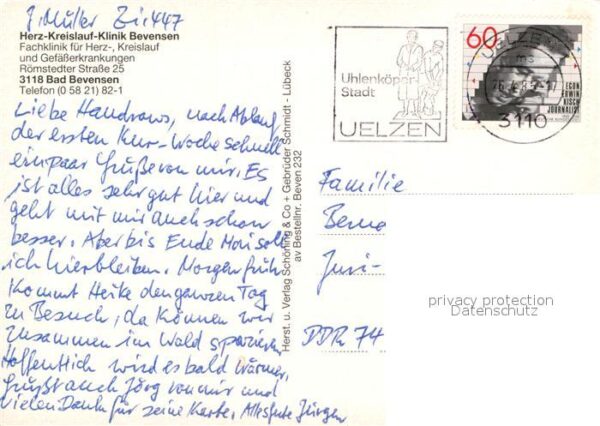 J. Müller Zi. 447
Herz-Kreislauf-Klinik Bevensen
Fachklinik für Herz-, Kreislauf
und Gefäßerkrankungen
Römstedter Straße 25
3118 Bad Bevensen
Telefon (0 58 21) 82-1
Liebe nach Ablauf
der ersten Kur-Woche schnell
ein paar Grüße von mir. Es
ist alles sehr gut hier und
geht mit mir auch schon
besser. Aber bis Ende Mai soll
ich hierbleiben. Morgen früh
kommt Heike den ganzen Tag
zu Besuch, da können wir
zusammen im Wald spazieren.
Hoffentlich wird es bald wärmer.
Grüßt auch Jörg von mir und
vielen Dank für seine Karte. Alles Gute Jürgen
Herst. u. Verlag Schöning & Co + Gebrüder Schmidt - Lübeck
av Bestellnr. Beven 232
Uhlenköper-
Stadt
UELZEN
UELZEN
3110
60
EGON
ERWIN
KISCH
JOURNALIST
Familie
DDR 74
privacy protection
Datenschutz